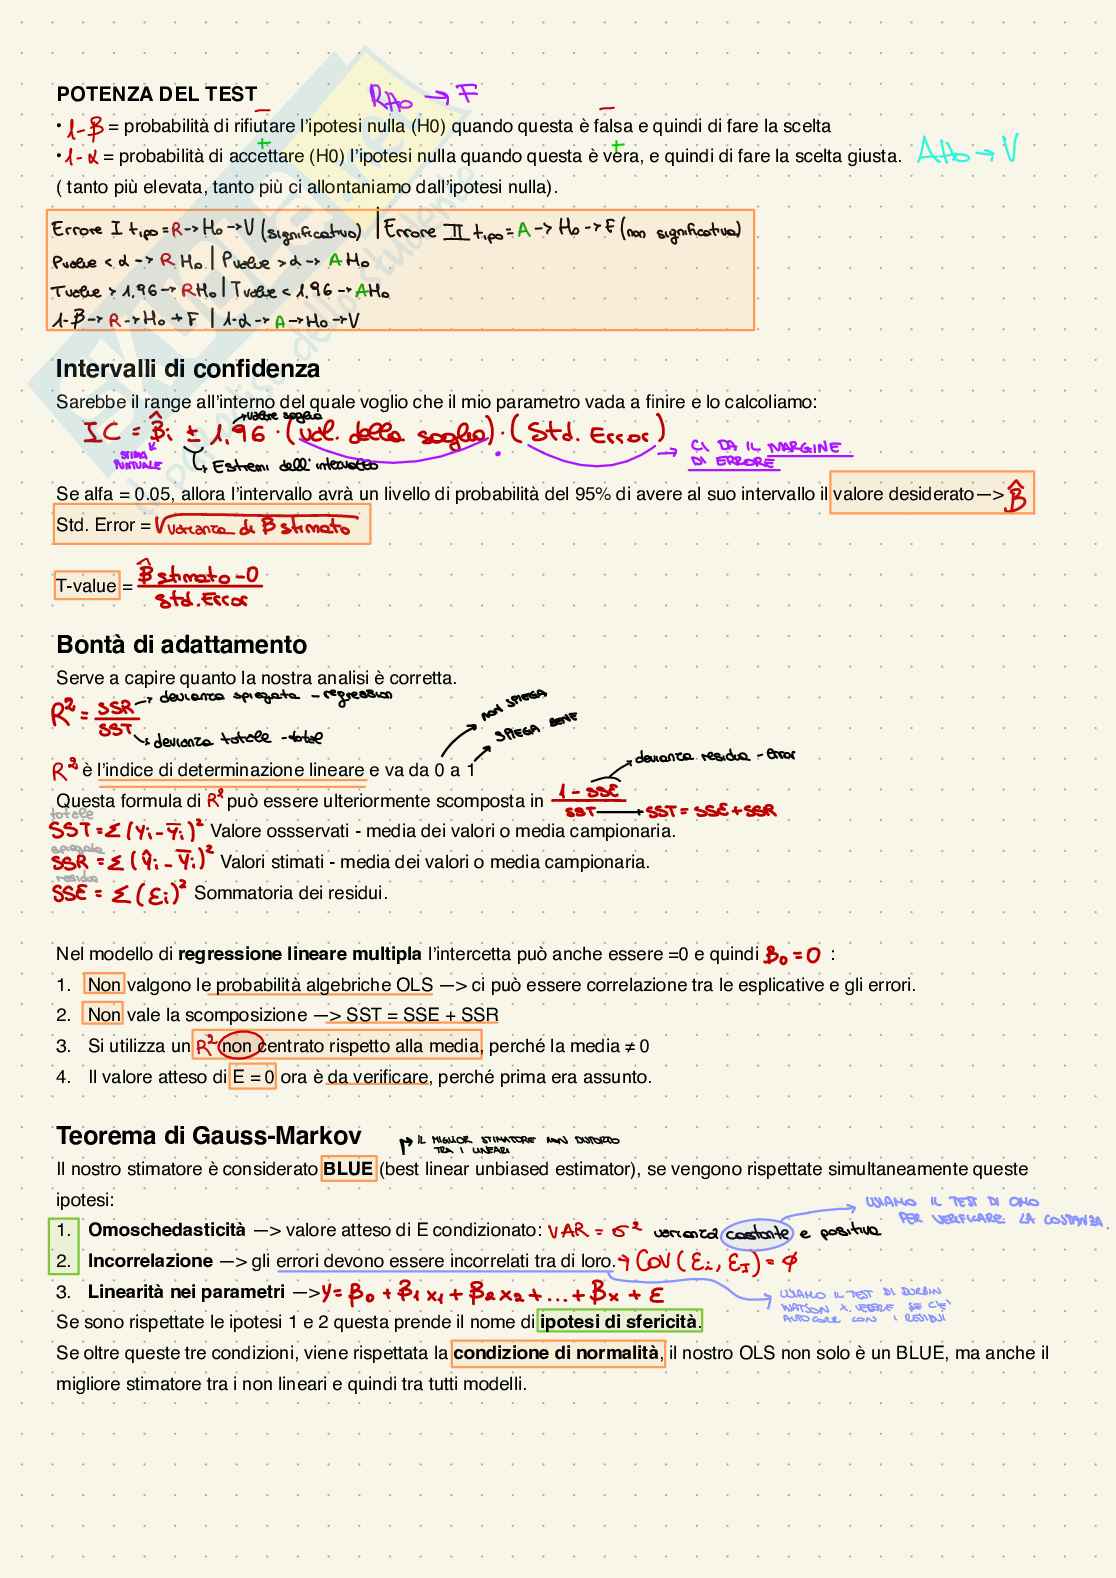 POTENZA DEL TEST
RHo → F
• 1-β = probabilità di rifiutare l'ipotesi nulla (H0) quando questa è falsa e quindi di fare la scelta
• 1-α = probabilità di accettare (H0) l'ipotesi nulla quando questa è vera, e quindi di fare la scelta giusta. AHo → V
( tanto più elevata, tanto più ci allontaniamo dall'ipotesi nulla).
Errore I tipo = R → Ho → V (significativo) | Errore II tipo = A → Ho → F (non significativo)
Pvalue < α → R Ho | Pvalue > α → A Ho
Tvalue > 1.96 → RHo | Tvalue < 1.96 → AHo
1-β → R → Ho → F | 1-α → A → Ho → V
Intervalli di confidenza
Sarebbe il range all'interno del quale voglio che il mio parametro vada a finire e lo calcoliamo:
→ valore soglia
IC = β̂i ± 1.96 · (val. della soglia) · (Std. Error)
→ CI DA IL MARGINE DI ERRORE
STIMA PUNTUALE
→ Estremi dell'intervallo
Se alfa = 0.05, allora l'intervallo avrà un livello di probabilità del 95% di avere al suo intervallo il valore desiderato —> β̂
Std. Error = √varianza di β stimato
T-value = β̂ stimato - 0
Std. Error
Bontà di adattamento
Serve a capire quanto la nostra analisi è corretta.
R² = SSR → devianza spiegata - regression
SST → devianza totale - total
NON SPIEGA
SPIEGA BENE
devianza residua - error
R² è l'indice di determinazione lineare e va da 0 a 1
Questa formula di R² può essere ulteriormente scomposta in 1 - SSE
SST → SST = SSE + SSR
totale
SST = Σ (yi - ȳi)² Valore ossservati - media dei valori o media campionaria.
spiegata
SSR = Σ (ŷi - ȳi)² Valori stimati - media dei valori o media campionaria.
residua
SSE = Σ (εi)² Sommatoria dei residui.
Nel modello di regressione lineare multipla l'intercetta può anche essere =0 e quindi β₀ = 0 :
1. Non valgono le probabilità algebriche OLS —> ci può essere correlazione tra le esplicative e gli errori.
2. Non vale la scomposizione —> SST = SSE + SSR
3. Si utilizza un R² non centrato rispetto alla media, perché la media ≠ 0
4. Il valore atteso di E = 0 ora è da verificare, perché prima era assunto.
Teorema di Gauss-Markov
→ IL MIGLIOR STIMATORE NON DISTORTO
TRA I LINEARI
Il nostro stimatore è considerato BLUE (best linear unbiased estimator), se vengono rispettate simultaneamente queste
ipotesi:
→ USIAMO IL TEST DI OMO
PER VERIFICARE LA COSTANZA
1. Omoschedasticità —> valore atteso di E condizionato: VAR = σ² varianza costante e positiva
2. Incorrelazione —> gli errori devono essere incorrelati tra di loro. → COV (εi, εJ) = ϕ
3. Linearità nei parametri —> y = β₀ + β₁x₁ + β₂x₂ + ... + βx + ε
→ USIAMO IL TEST DI DURBIN
WATSON X VEDERE SE C'E'
AUTOCORR CON I RESIDUI
Se sono rispettate le ipotesi 1 e 2 questa prende il nome di ipotesi di sfericità.
Se oltre queste tre condizioni, viene rispettata la condizione di normalità, il nostro OLS non solo è un BLUE, ma anche il
migliore stimatore tra i non lineari e quindi tra tutti modelli.